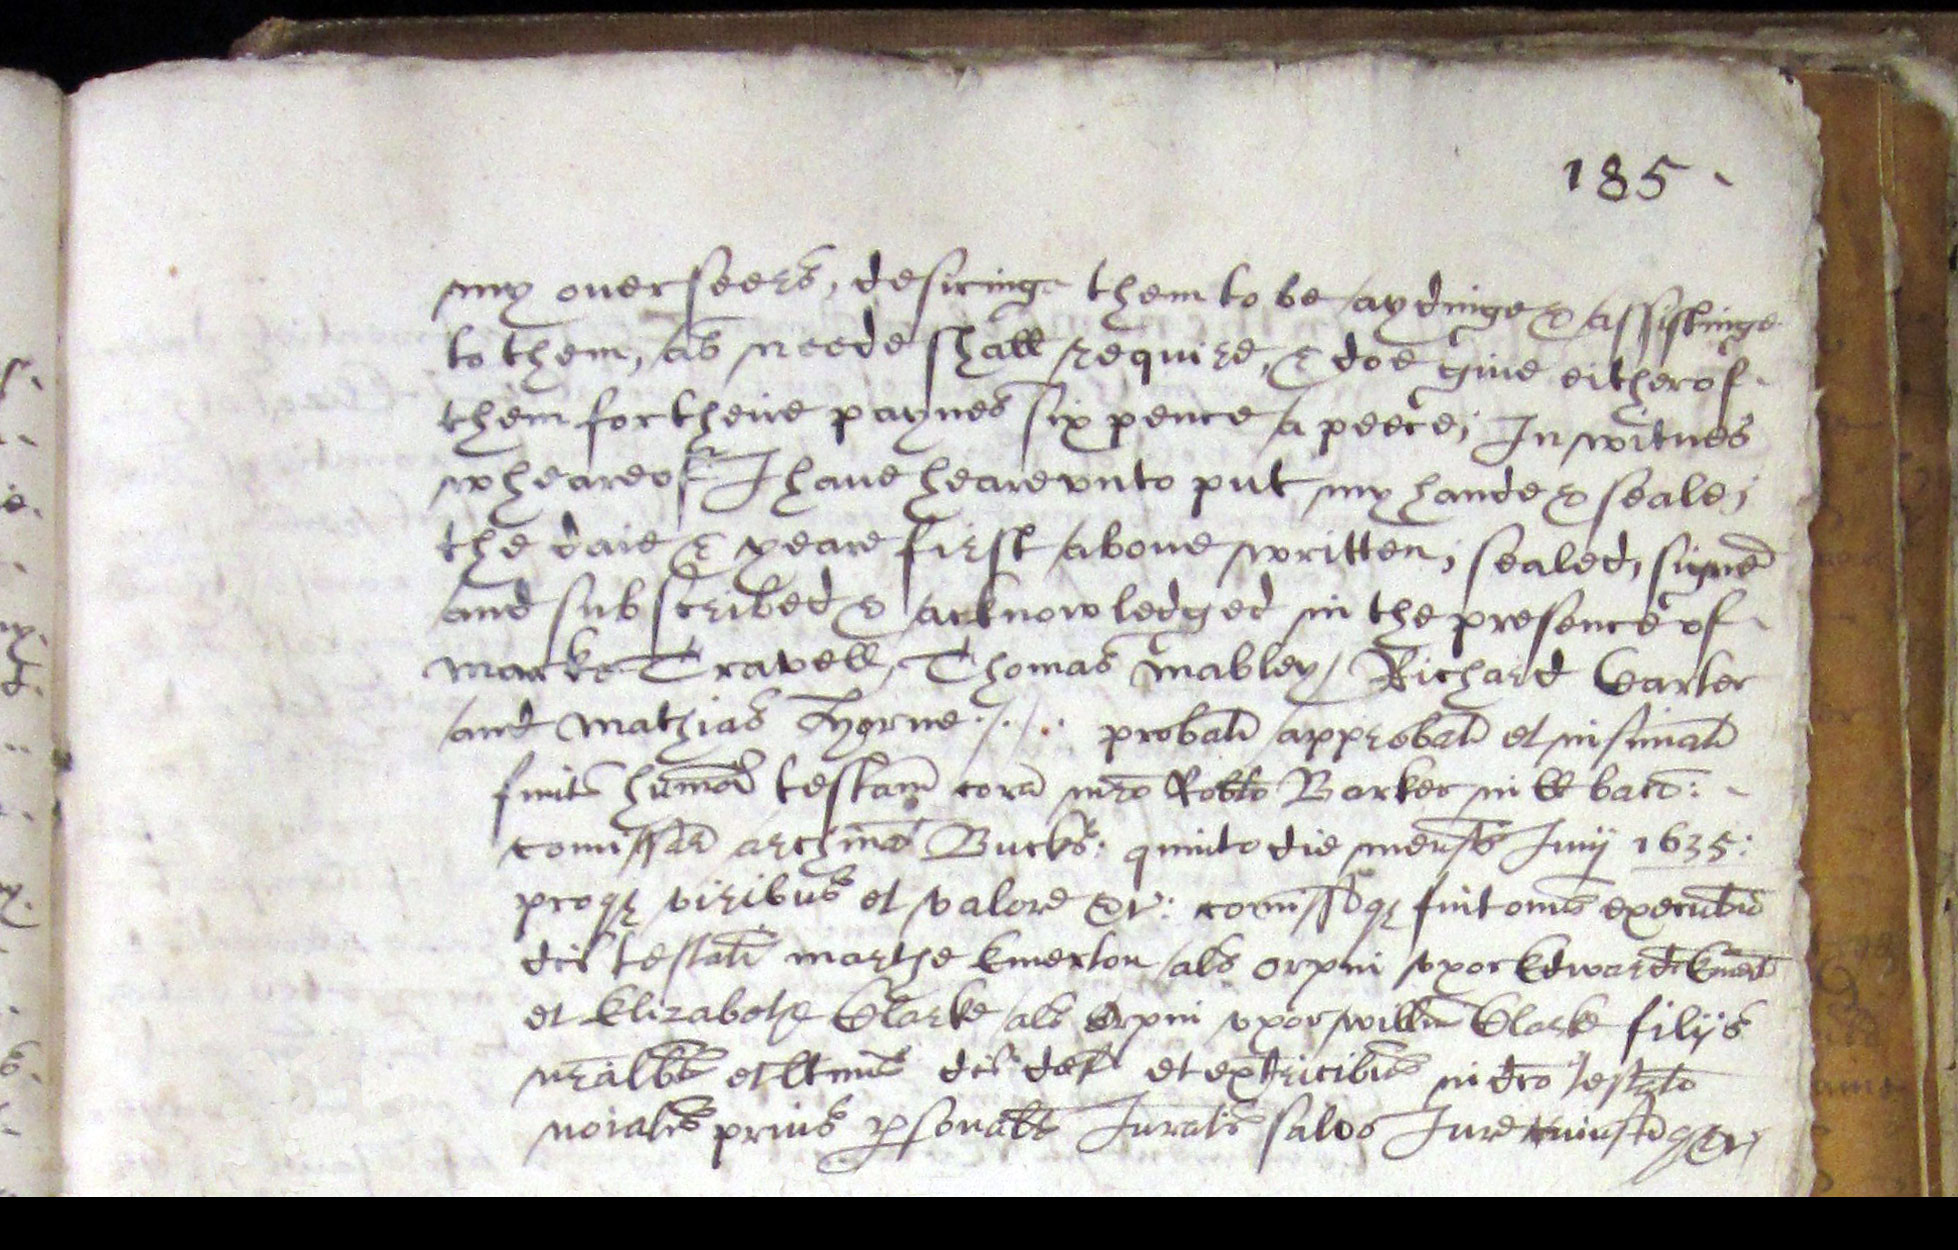 185
my overseers, desiringe them to be aydinge & assistinge
to them, as neede shall require, & doe give either of
them for theire paynes six pence a peece; In witnes
wheareof I have heare vnto put my hande & seale,
the daie & yeare first above written, sealed, signed
and subscribed & acknowledged in the presence of
Marke Travell, Thomas Mabley, Richard Carter
and Mathias Hyorne ./.
probatū approbatū et insinuatū
fuit humōi testam̄ corā mr̄o Robt̄o Barker in ll baccō:
comissār archīnat Bucks: quinto die mensis Junij 1635:
proqꝫ viribus et valore &c: comissaqꝫ fuit omis executio
dcī testatī marthe Emerton als Orpin vxor Edwardi
et Elizabethe Clarke als Orpin vxor willm̄ Clarke filijs
nrālbs et ltimis dcī def et extricibus in dco testato
noiatis prius psonalr Juratis salvo Jure cuiuscūqꝫ &c